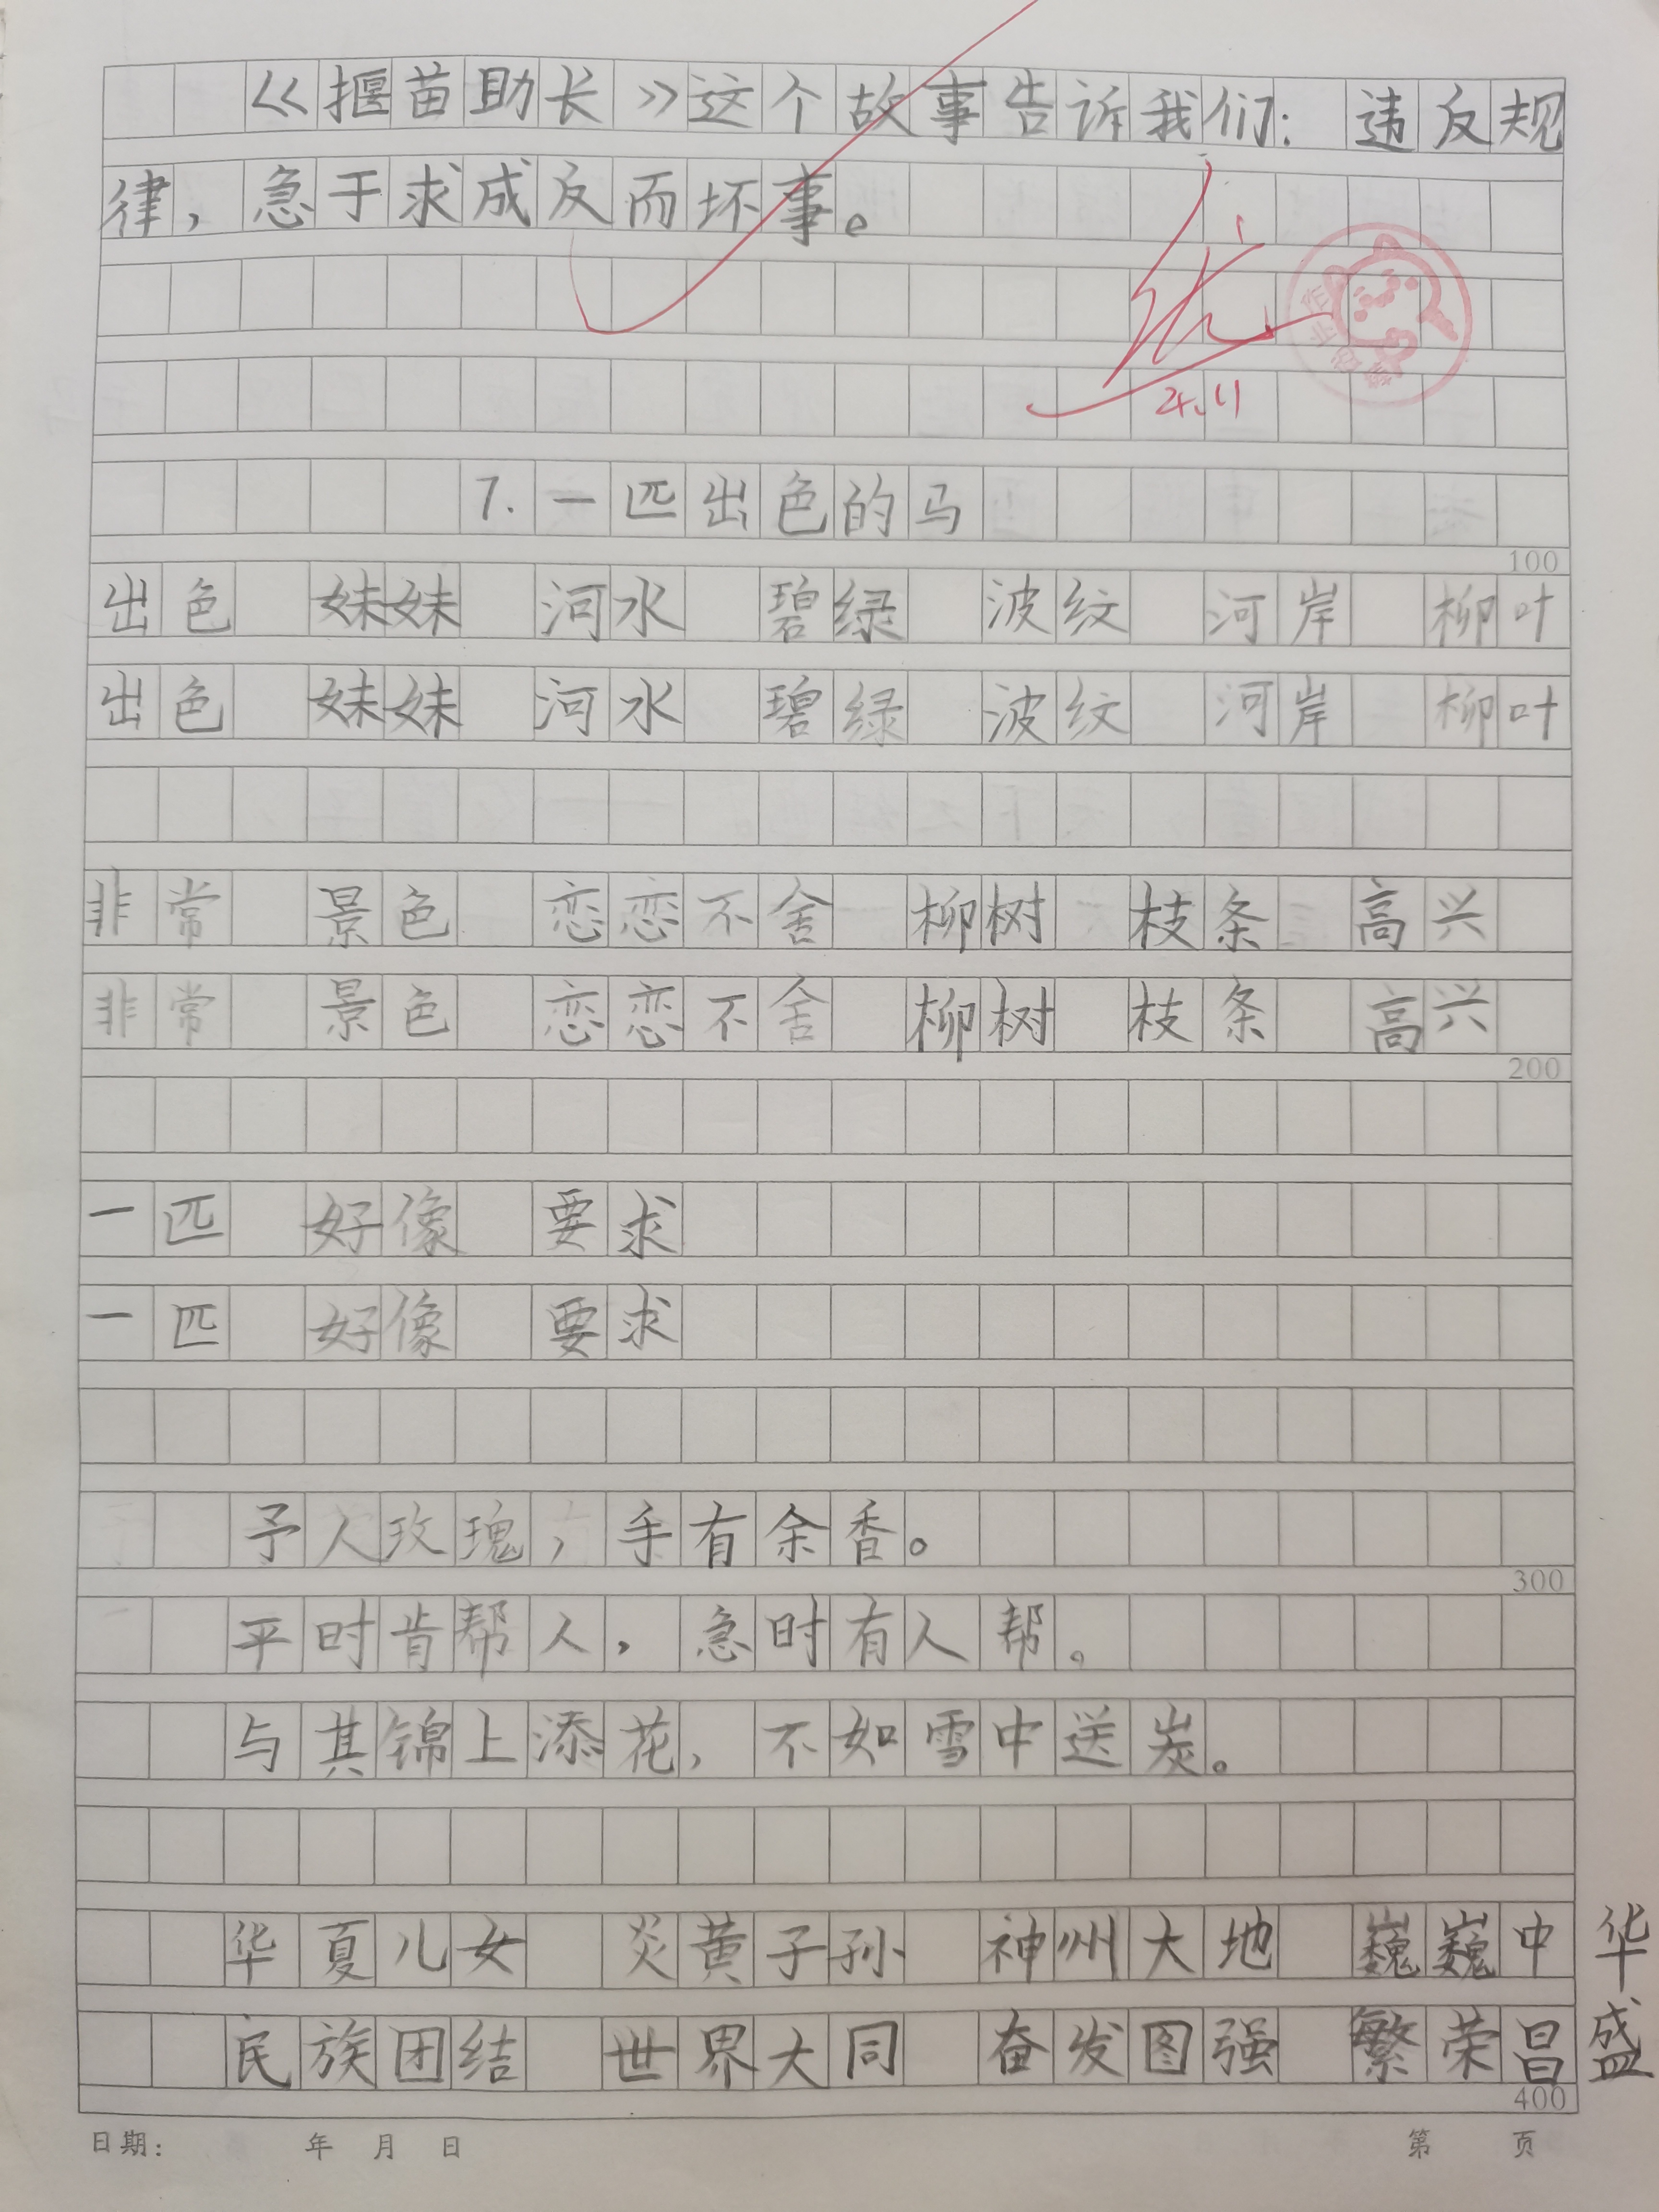 《揠苗助长》这个故事告诉我们：违反规
律，急于求成反而坏事。
优
4.11
7.一匹出色的马
100
出色 妹妹 河水 碧绿 波纹 河岸 柳叶
出色 妹妹 河水 碧绿 波纹 河岸 柳叶
非常 景色 恋恋不舍 柳树 枝条 高兴
非常 景色 恋恋不舍 柳树 枝条 高兴
200
一匹 好像 要求
一匹 好像 要求
予人玫瑰，手有余香。
300
平时肯帮人，急时有人帮。
与其锦上添花，不如雪中送炭。
华夏儿女 炎黄子孙 神州大地 巍巍中华
民族团结 世界大同 奋发图强 繁荣昌盛
400
日期： 年 月 日 第 页